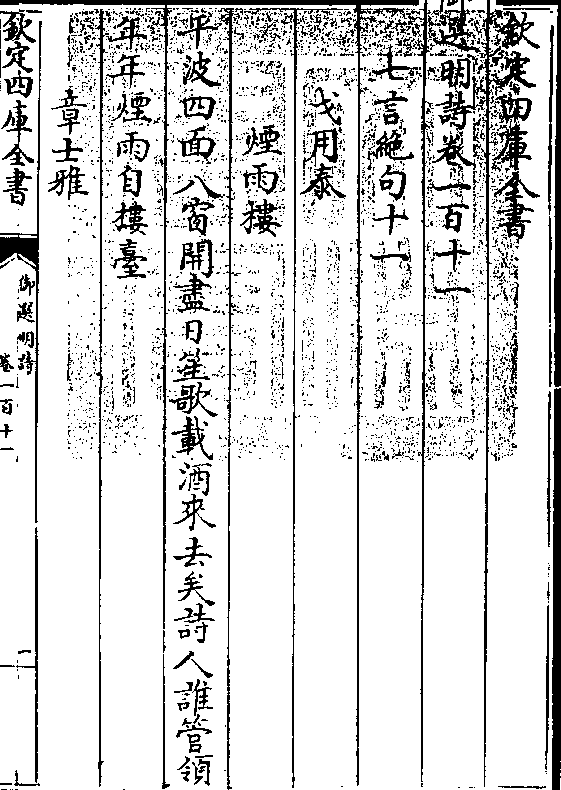 欽定四庫全書
御選明詩卷一百十一
七言絶句十一
戈用泰
煙雨樓
平波四面八窗開盡日笙歌載酒來去矣詩人誰管領
年年煙雨自樓臺
章士雅
欽定四庫全書
御選明詩
卷一百十一
一